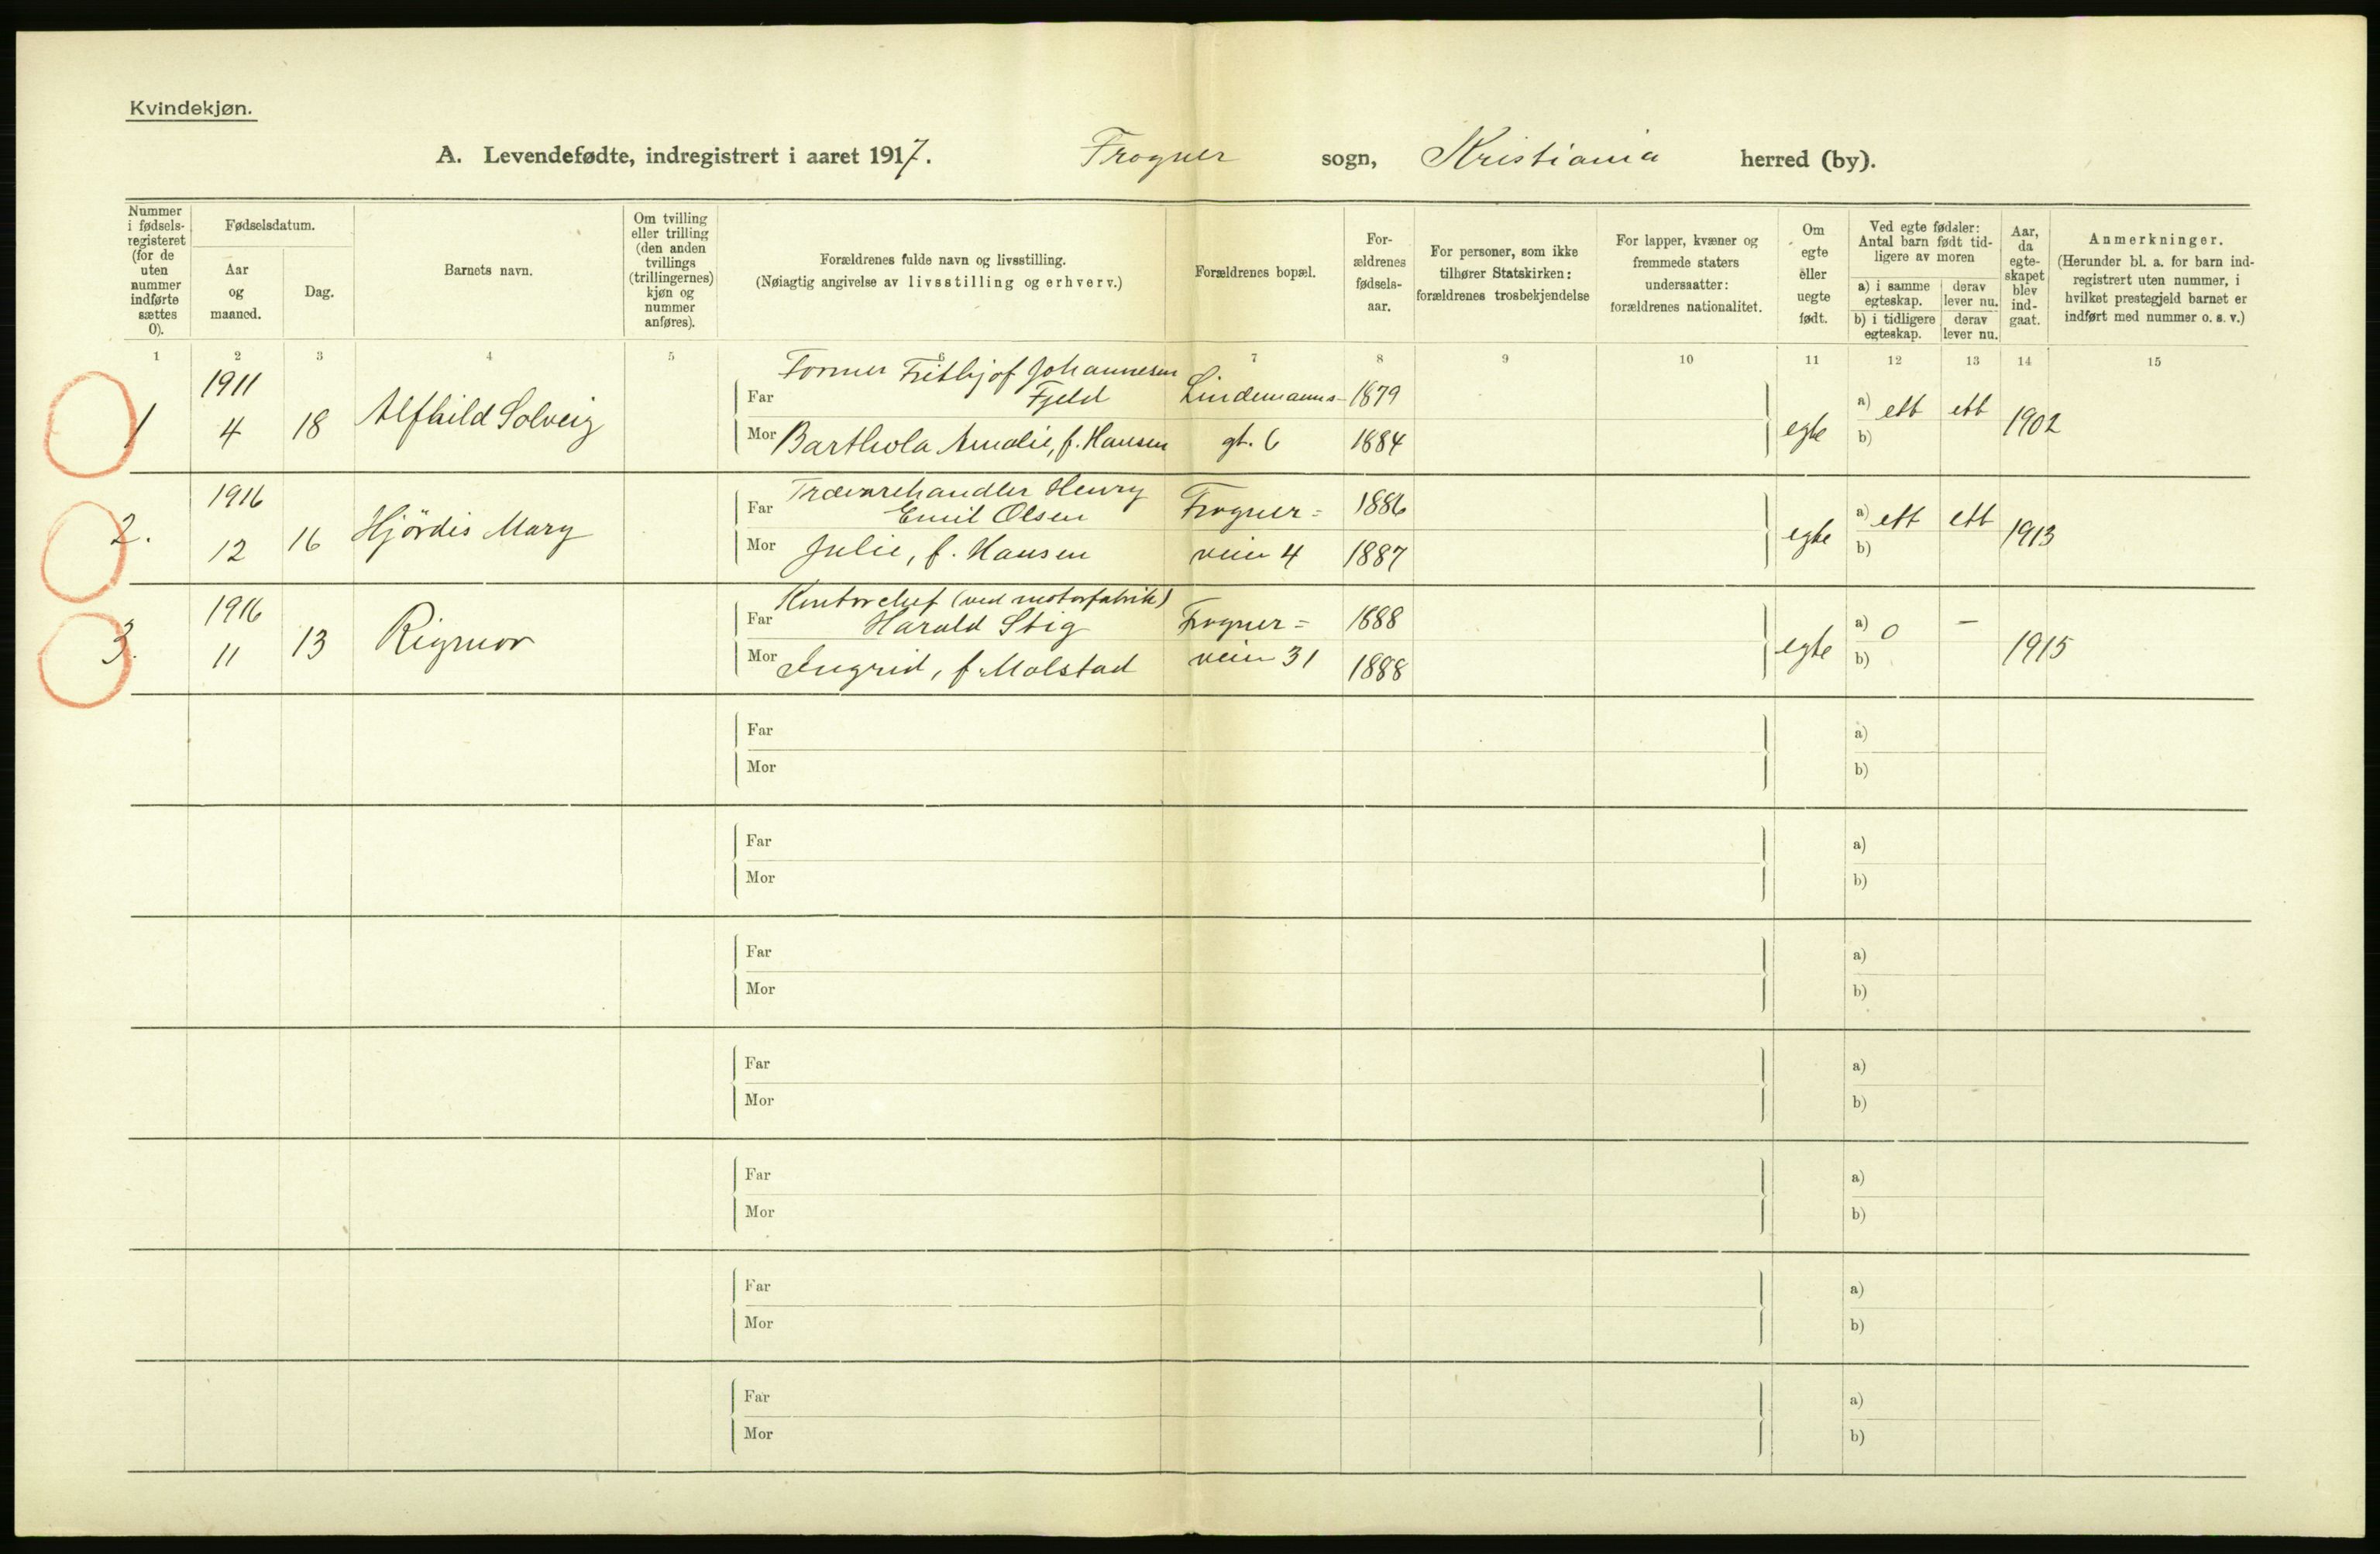 Kvindekjøn.
A. Levendefødte, indregistrert i aaret 1917. Frogner sogn, Kristiania herred (by).
Nummer i fødsels-registeret (for de uten nummer indførte sættes 0).
Fødselsdatum.
Aar og maaned.
Dag.
Barnets navn.
Om tvilling eller trilling (den anden tvillings (trillingernes) kjøn og nummer anføres).
Forældrenes fulde navn og livsstilling.
(Nøiagtig angivelse av livsstilling og erhverv.)
Forældrenes bopæl.
For-ældrenes fødsels-aar.
For personer, som ikke tilhører Statskirken: forældrenes trosbekjendelse
For lapper, kvæner og fremmede staters undersaatter: forældrenes nationalitet.
Om egte eller uegte født.
Ved egte fødsler: Antal barn født tid-ligere av moren
a) i samme egteskap. derav lever nu.
b) i tidligere egteskap. derav lever nu.
Aar, da egte-skapet blev ind-gaat.
Anmerkninger.
(Herunder bl. a. for barn ind-registrert uten nummer, i hvilket prestegjeld barnet er indført med nummer o. s. v.)
1 2 3 4 5 6 7 8 9 10 11 12 13 14 15
1 1911 4 18 Alfhild Solveig
Former Frithjof Johannesen
Far Fjeld Lindemanns- 1879
Mor Barthola Amalie, f. Hansen gt. 6 1884
egte a) ett ett b) 1902
2. 1916 12 16 Hjördis Mary
Trævarehandler Henry
Far Emil Olsen Frogner= 1886
Mor Julie, f. Hansen veien 4 1887
egte a) ett ett b) 1913
3. 1916 11 13 Rigmor
Kontorchef (ved motorfabrik)
Far Harald Stig Frogner= 1888
Mor Ingrid, f. Molstad veien 31 1888
egte a) 0 – b) 1915
Far a)
Mor b)
Far a)
Mor b)
Far a)
Mor b)
Far a)
Mor b)
Far a)
Mor b)
Far a)
Mor b)
Far a)
Mor b)